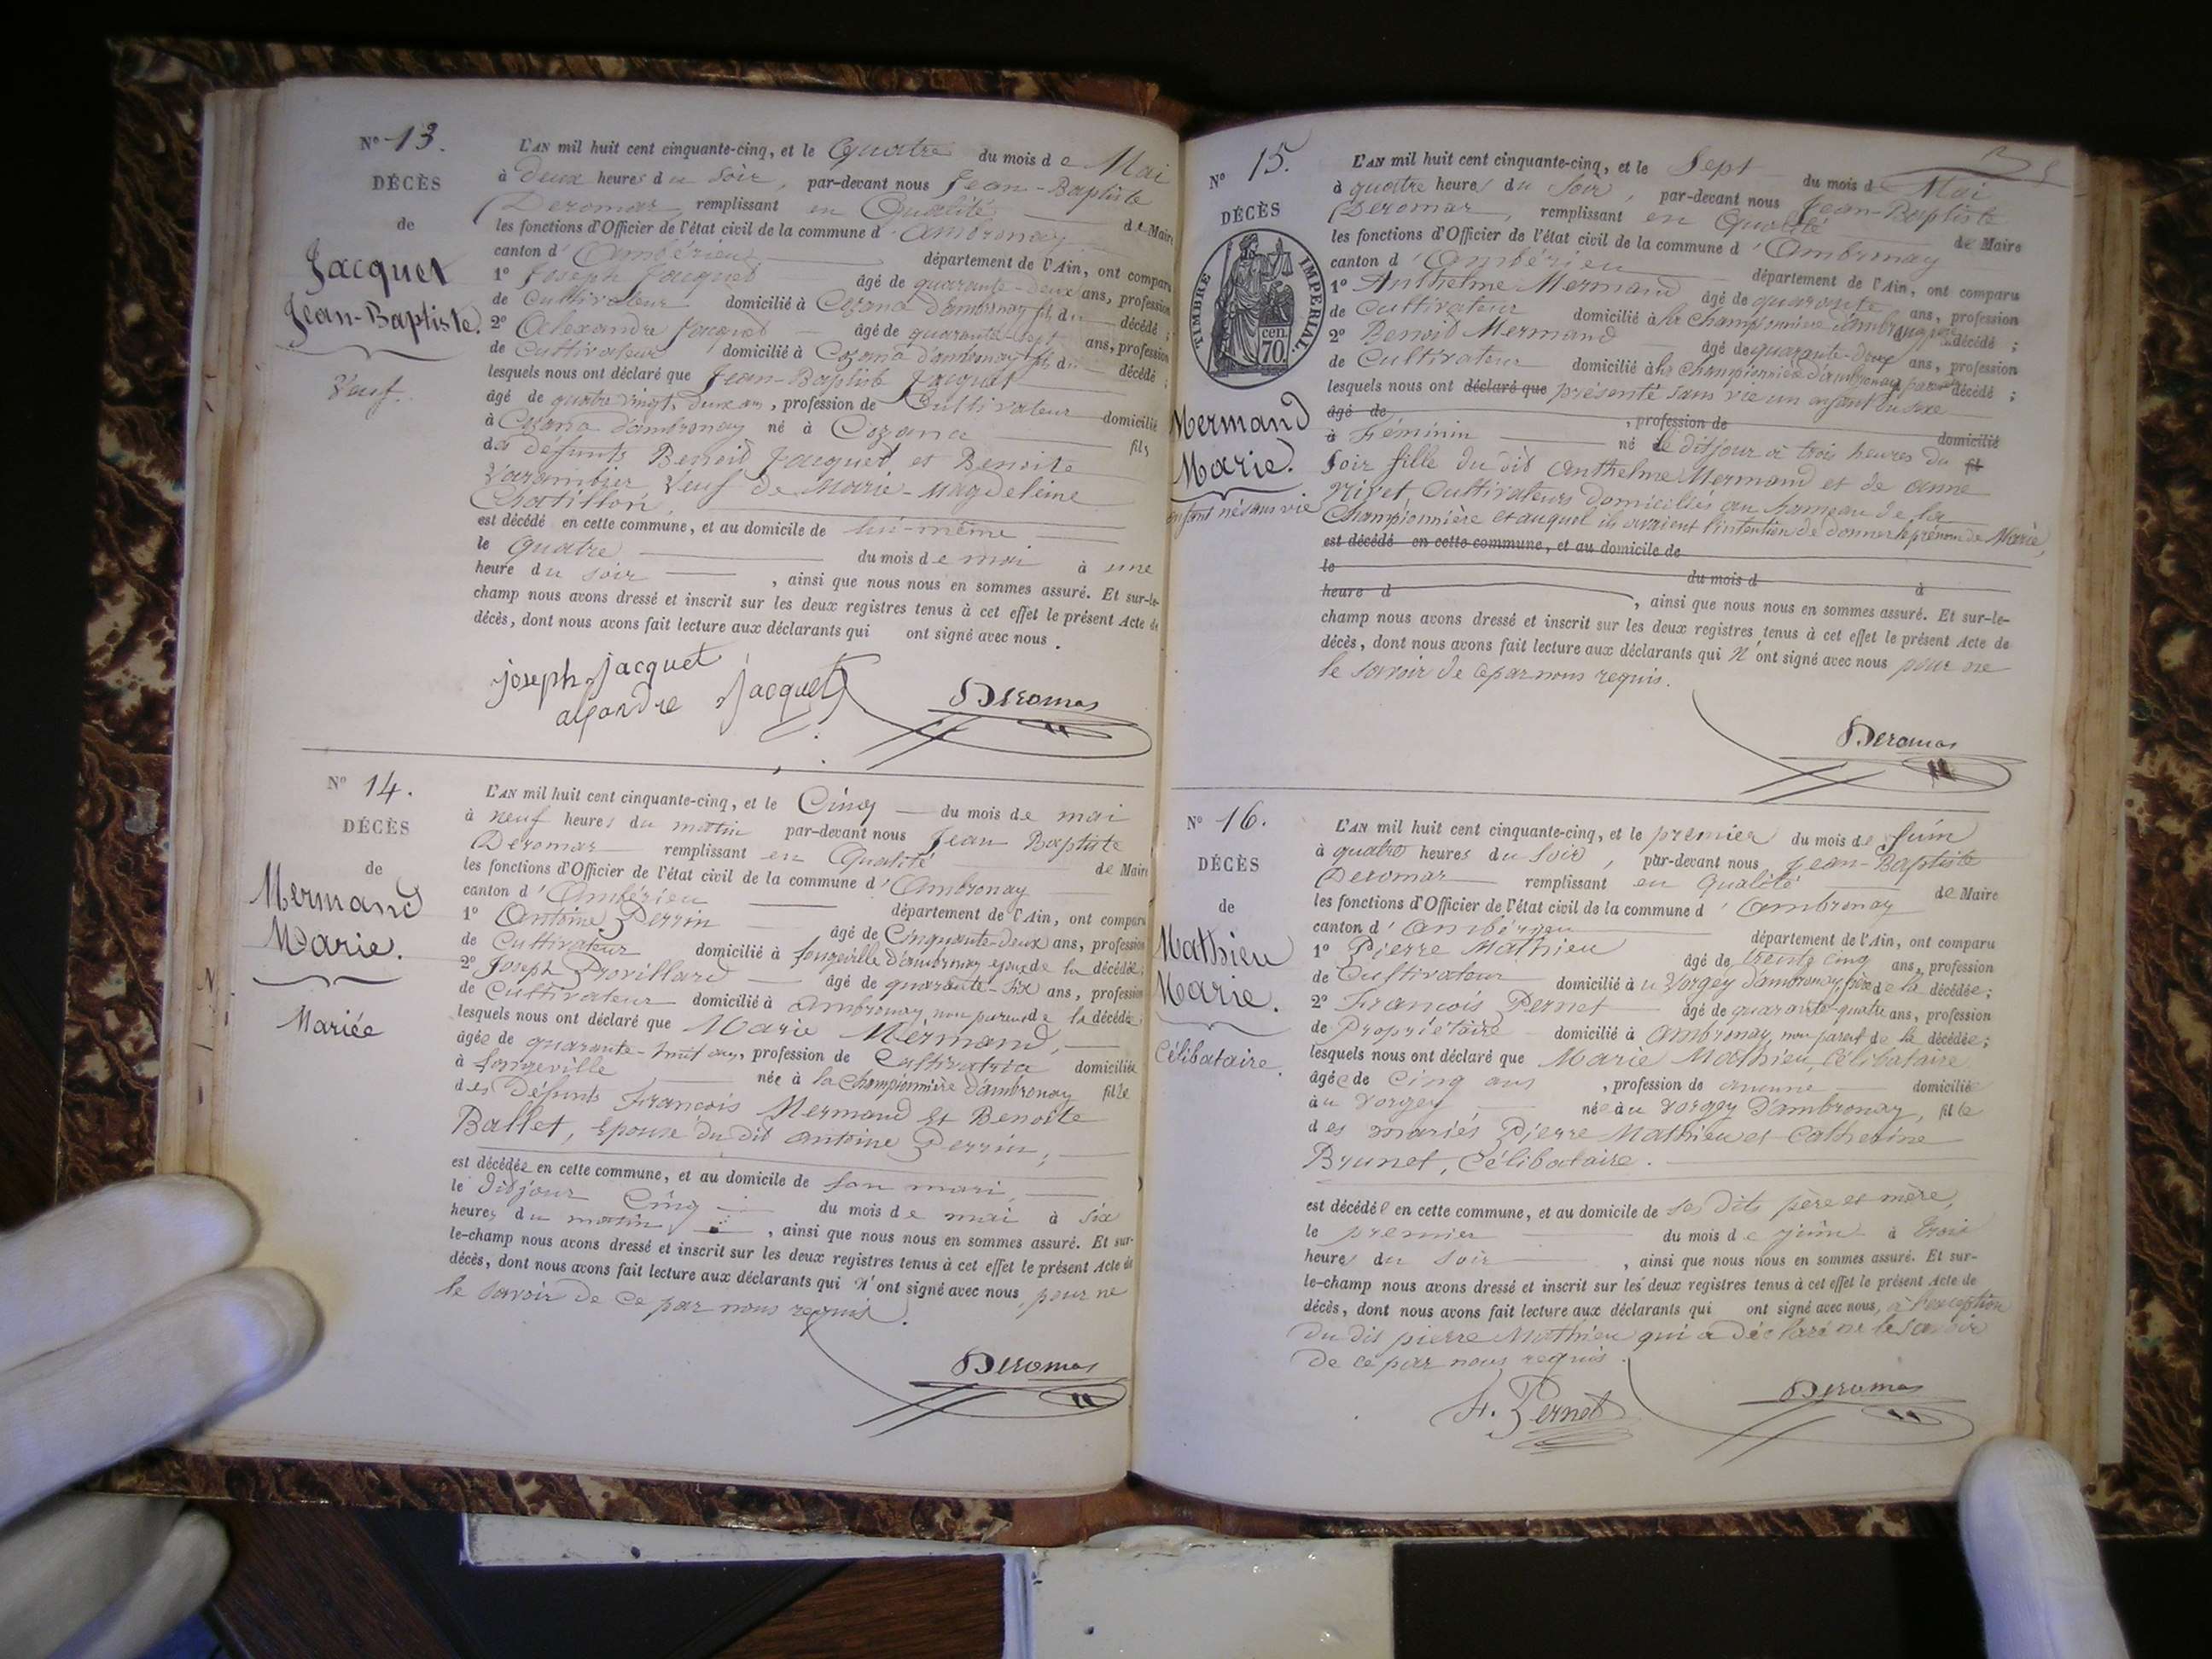 Nº 13.
DÉCÈS
de
Jacquet
Jean-Baptiste.
Veuf.
L'AN mil huit cent cinquante-cinq, et le Quatre du mois de Mai
à deux heures du soir, par-devant nous Jean-Baptiste
Deromas, remplissant en Qualité de Maire
les fonctions d'Officier de l'état civil de la commune d'Ambronay
canton d'Ambérieu département de l'Ain, ont comparu
1º Joseph Jacquet âgé de quarante-deux ans, profession
de Cultivateur domicilié à Cozance d'ambronay fils du décédé ;
2º Alexandre Jacquet âgé de quarante-sept ans, profession
de Cultivateur domicilié à d'ambronay fils du décédé ;
lesquels nous ont déclaré que Jean-Baptiste Jacquet
âgé de quatre vingt deux ans, profession de Cultivateur domicilié
à d'ambronay né à fils
des défunts Benoit Jacquet et Benoite
Varambier Veuf de Marie-Magdeleine
Chatillon,
est décédé en cette commune, et au domicile de lui-même
le Quatre du mois de mai à une
heure du soir, ainsi que nous nous en sommes assuré. Et sur-le-
champ nous avons dressé et inscrit sur les deux registres tenus à cet effet le présent Acte de
décès, dont nous avons fait lecture aux déclarants qui ont signé avec nous.
joseph jacquet
alexandre jacquet Deromas
Nº 14.
DÉCÈS
de
Mermand
Marie.
Mariée
L'AN mil huit cent cinquante-cinq, et le Cinq du mois de mai
à neuf heures du matin par-devant nous Jean Baptiste
Deromas remplissant en Qualité de Maire
les fonctions d'Officier de l'état civil de la commune d'Ambronay
canton d'Ambérieu département de l'Ain, ont comparu
1º Antoine Perrin âgé de Cinquante-deux ans, profession
de Cultivateur domicilié à Longeville d'ambronay epoux de la décédée ;
2º Joseph Provillard âgé de quarante-six ans, profession
de Cultivateur domicilié à Ambronay, non parent de la décédée ;
lesquels nous ont déclaré que Marie Mermand,
âgée de quarante-huit ans, profession de Cultivatrice domiciliée
à Longeville née à la Championnière d'ambronay fille
des Défunts François Mermand et Benoite
Ballet, Epouse du dit Antoine Perrin,
est décédée en cette commune, et au domicile de son mari,
le dit jour Cinq du mois de mai à six
heures du matin, ainsi que nous nous en sommes assuré. Et sur-
le-champ nous avons dressé et inscrit sur les deux registres tenus à cet effet le présent Acte de
décès, dont nous avons fait lecture aux déclarants qui n'ont signé avec nous, pour ne
le savoir de ce par nous requis.
Deromas
Nº 15.
DÉCÈS
TIMBRE IMPERIAL.
70 cen
Mermand
Marie.
enfant né sans vie
L'AN mil huit cent cinquante-cinq, et le Sept du mois de Mai
à quatre heures du soir, par-devant nous Jean-Baptiste
Deromas, remplissant en Qualité de Maire
les fonctions d'Officier de l'état civil de la commune d'Ambronay
canton d'Ambérieu département de l'Ain, ont comparu
1º Anthelme Mermand âgé de quarante ans, profession
de Cultivateur domicilié à la Championnière d'ambronay père décédé ;
2º Benoit Mermand âgé de quarante-deux ans, profession
de Cultivateur domicilié à la Championnière d'ambronay parent décédé ;
lesquels nous ont déclaré que présenté sans vie un enfant du sexe
âgé de , profession de domicilié
à Féminin né le dit jour à trois heures du fil
soir fille du dit Anthelme Mermand et de anne
Nivet, Cultivateurs domiciliés au hameau de la
Championnière et auquel ils avaient l'intention de donner le prénom de Marie,
est décédé en cette commune, et au domicile de
le du mois d à
heure d , ainsi que nous nous en sommes assuré. Et sur-le-
champ nous avons dressé et inscrit sur les deux registres tenus à cet effet le présent Acte de
décès, dont nous avons fait lecture aux déclarants qui n'ont signé avec nous pour ne
le savoir de ce par nous requis.
Deromas
Nº 16.
DÉCÈS
de
Mathieu
Marie.
Célibataire.
L'AN mil huit cent cinquante-cinq, et le premier du mois de Juin
à quatre heures du soir, par-devant nous Jean-Baptiste
Deromas remplissant en Qualité de Maire
les fonctions d'Officier de l'état civil de la commune d'Ambronay
canton d'Ambérieu département de l'Ain, ont comparu
1º Pierre Mathieu âgé de trente cinq ans, profession
de Cultivateur domicilié à u Vorgey d'ambronay, père de la décédée ;
2º François Pernet âgé de quarante-quatre ans, profession
de Propriétaire domicilié à Ambronay, non parent de la décédée ;
lesquels nous ont déclaré que Marie Mathieu, Célibataire
âgée de Cinq ans, profession de aucune domiciliée
à u Vorgey née à u Vorgey d'ambronay, fille
des mariés Pierre Mathieu et Catherine
Brunet, Célibataire.
est décédée en cette commune, et au domicile de ses dits père et mère,
le premier du mois de juin à trois
heures du soir, ainsi que nous nous en sommes assuré. Et sur-
le-champ nous avons dressé et inscrit sur les deux registres tenus à cet effet le présent Acte de
décès, dont nous avons fait lecture aux déclarants qui ont signé avec nous, à l'exception
du dit pierre Mathieu qui a déclaré ne le savoir
de ce par nous requis.
F. Pernet Deromas